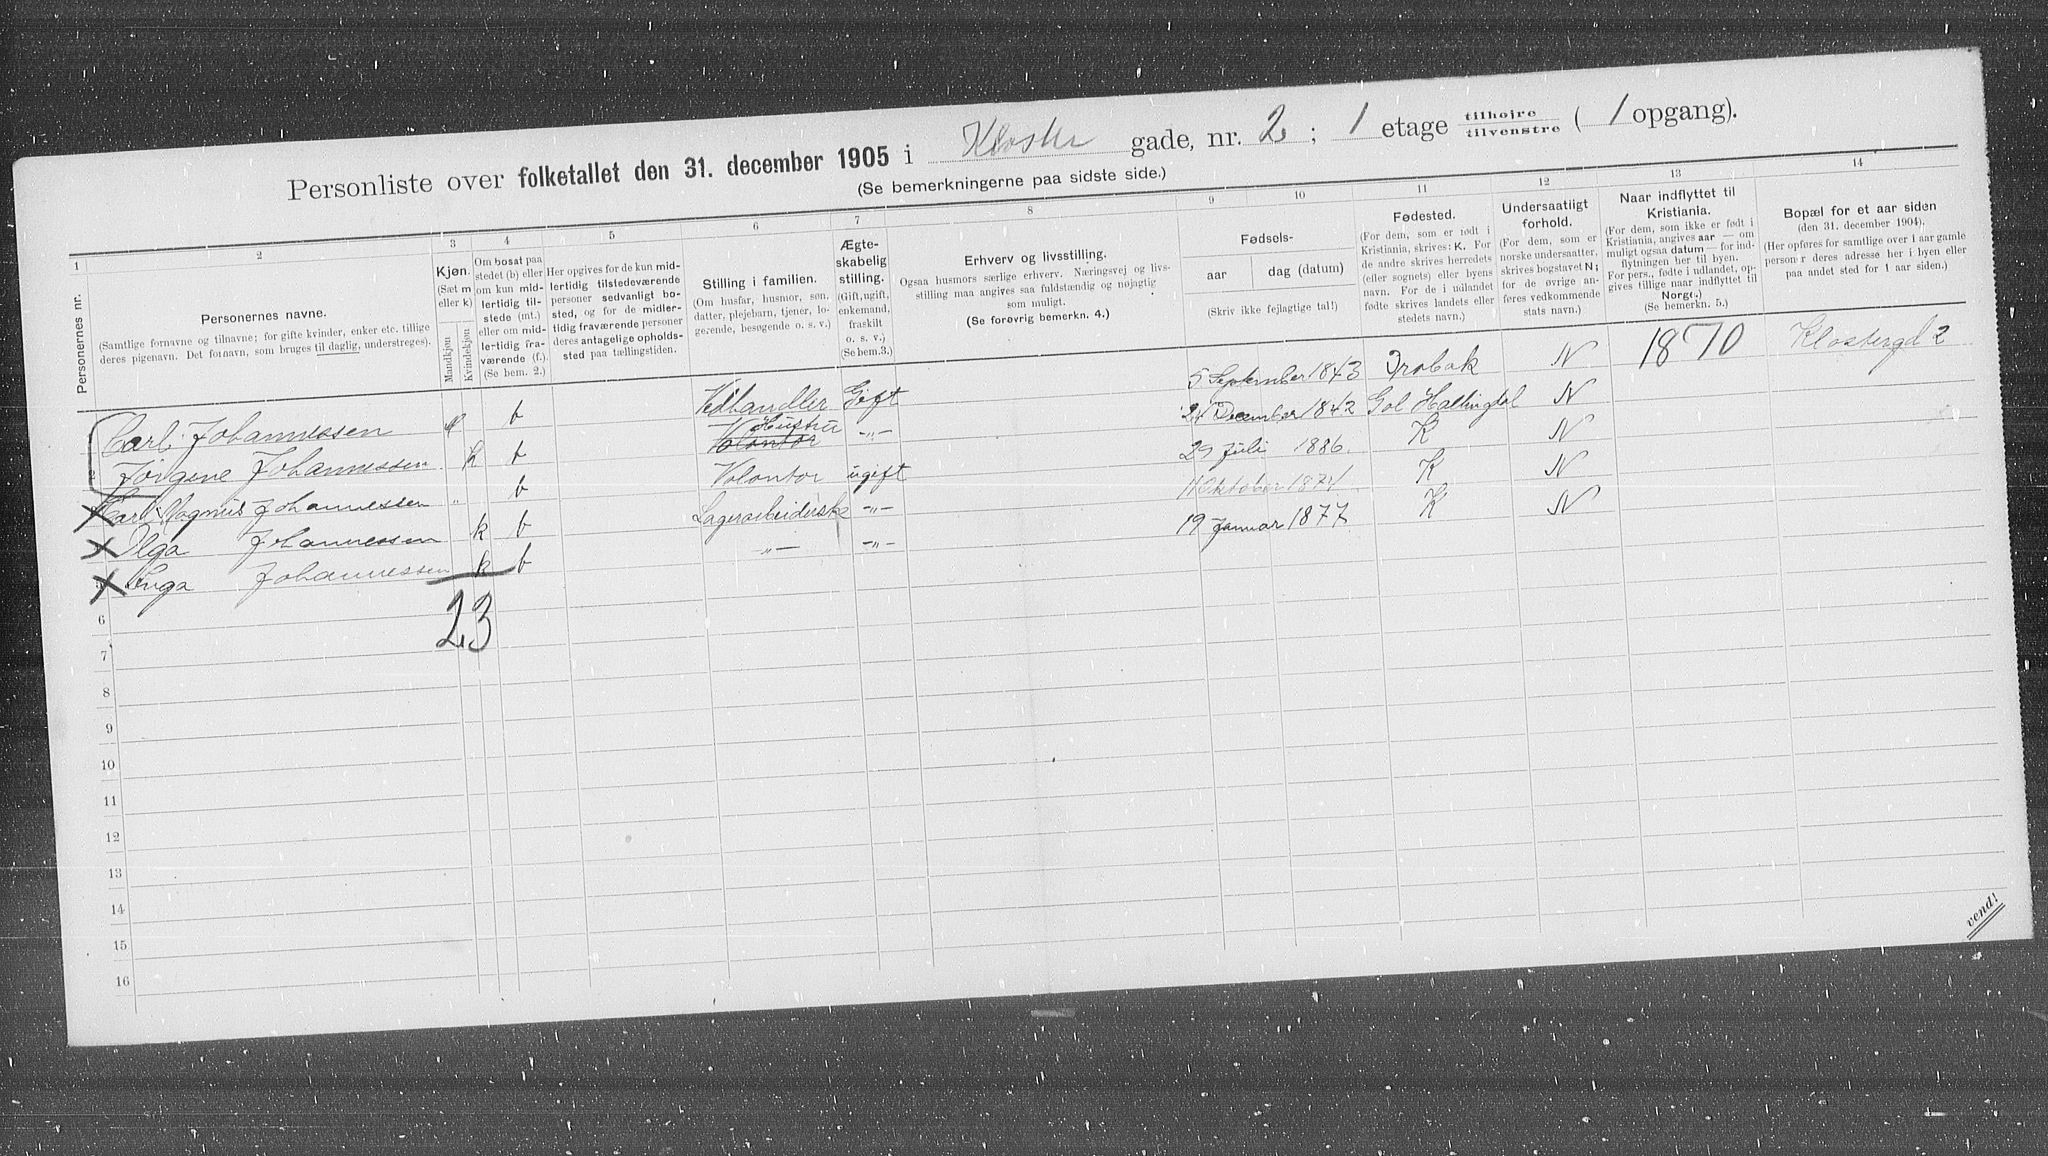 Personliste over folketallet den 31. december 1905 i Kloster gade, nr. 2 ; 1 etage tilhøjre tilvenstre ( 1 opgang).
(Se bemerkningerne paa sidste side.)
1 2 3 4 5 6 7 8 9 10 11 12 13 14
Personernes nr.
Personernes navne.
(Samtlige fornavne og tilnavne; for gifte kvinder, enker etc. tillige
deres pigenavn. Det fornavn, som bruges til daglig, understreges).
Kjøn.
(Sæt m
eller k)
Mandkjøn
Kvindekjøn
Om bosat paa
stedet (b) eller
om kun mid-
lertidig til-
stede (mt.)
eller om mid-
lertidig fra-
værende (f.)
(Se bem. 2.)
Her opgives for de kun mid-
lertidig tilstedeværende
personer sedvanlig bo-
sted, og for de midler-
tidig fraværende personer
deres antagelige opholds-
sted paa tællingstiden.
Stilling i familien.
(Om husfar, husmor, søn,
datter, plejebarn, tjener, lo-
gerende, besøgende o. s. v.)
Ægte-
skabelig
stilling.
(Gift, ugift,
enkemand,
fraskilt
o. s. v.)
(Se bem.3.)
Erhverv og livsstilling.
Ogsaa husmors særlige erhverv. Næringsvej og livs-
stilling maa angives saa fuldstændig og nøjagtig
som muligt.
(Se forøvrig bemerkn. 4.)
Fødsels-
aar
dag (datum)
(Skriv ikke fejlagtige tal!)
Fødested.
(For dem, som er født i
Kristiania, skrives: K. For
de andre skrives herredets
(eller sognets) eller byens
navn. For de i udlandet
fødte skrives landets eller
stedets navn.)
Undersaatligt
forhold.
(For dem, som er
norske undersaatter,
skrives bogstavet N;
for de øvrige an-
føres vedkommende
stats navn.)
Naar indflyttet til
Kristiania.
(For dem, som ikke er født i
Kristiania, angives aar — om
muligt ogsaa datum — for ind-
flytningen her til byen.
For pers., fødte i udlandet, op-
gives tillige naar indflyttet til
Norge.)
(Se bemerkn. 5.)
Bopæl for et aar siden
(den 31. december 1904).
(Her opføres for samtlige over 1 aar gamle
personer deres adresse her i byen eller
paa andet sted for 1 aar siden.)
Carl Johannessen b Vedhandler Gift 5 September 1843 Drøbak N 1870 Klostergd 2
Jørgene Johannessen k b Hustru -„- December 1842 Gol Hallingdal N
Carl Magnus Johannessen „ b Volontør ugift 29 Juli 1886. K N
Olga Johannessen k b Lagerarbeiderske -„- 11 Oktober 1874 K N
Inga Johannessen k b -„- -„- 19 Januar 1877 K N
23
6
7
8
9
10
11
12
13
14
15
16
vend!